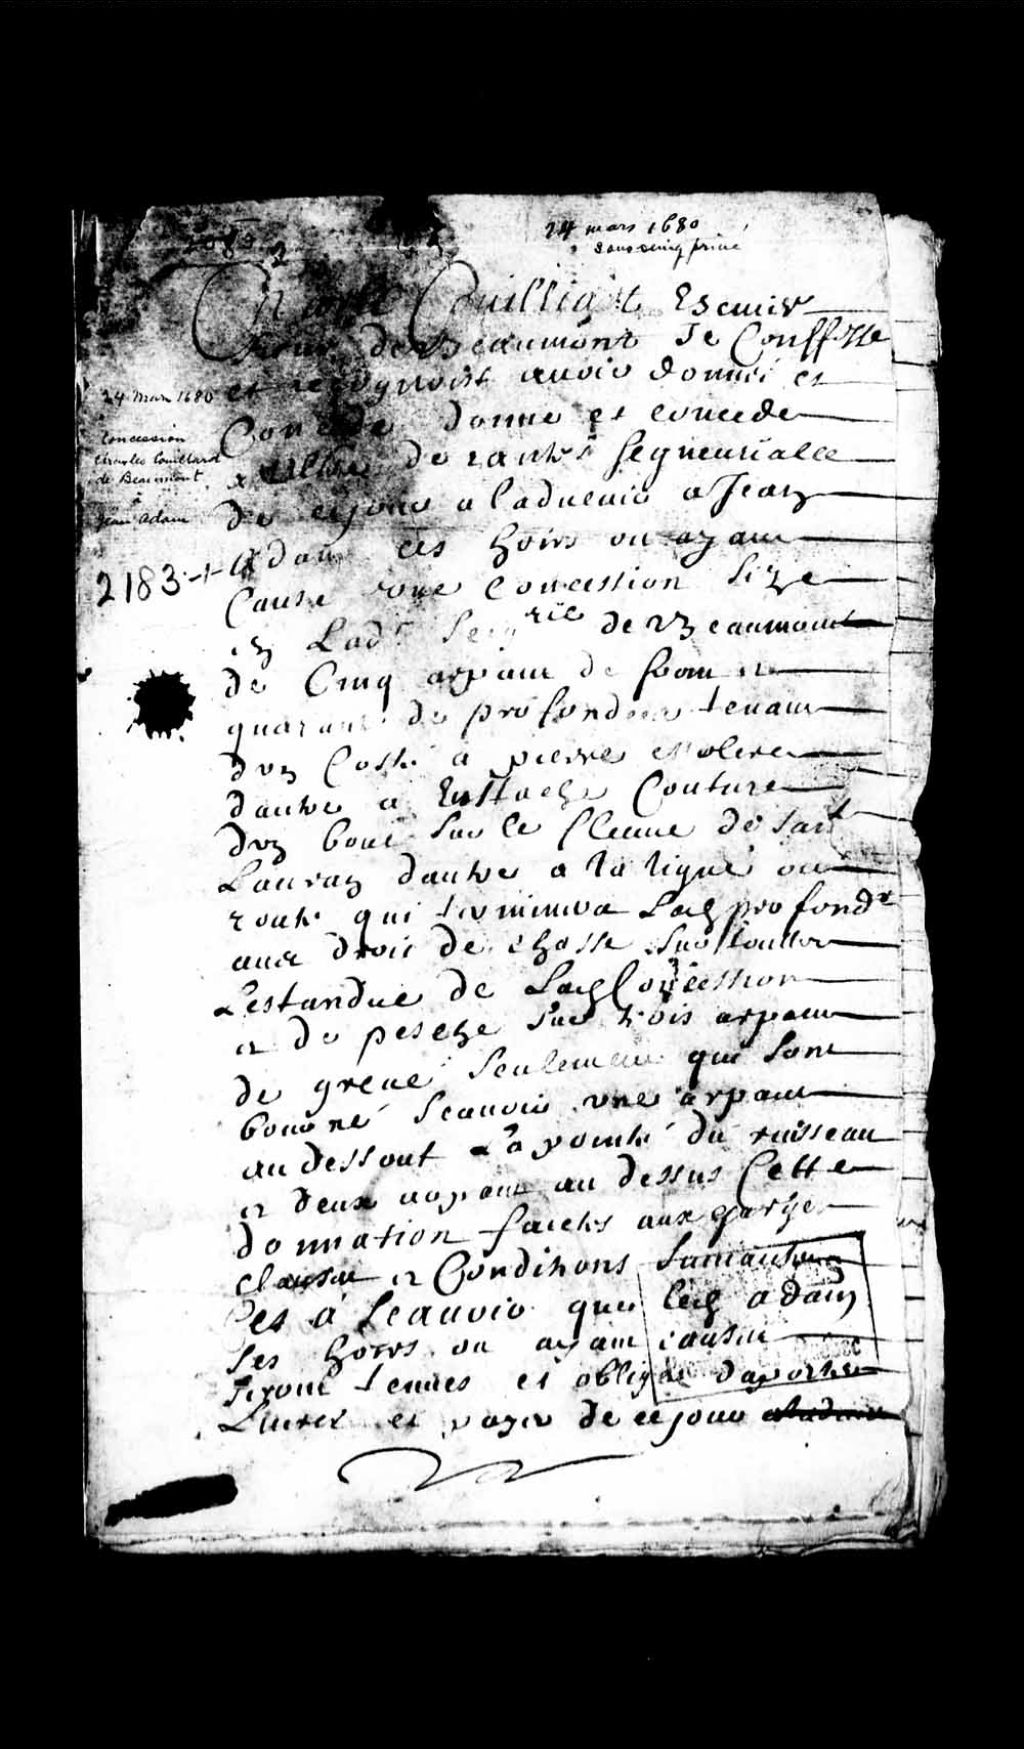 24 mars 1680
sous seing privé
24 Mars 1680
Concession
Charles Couillard
de Beaumont
à
Jean Adam
2183
Charle Couilliart Escuier
de Beaumont Je Confesse
et recognoist auoir donné et
Concede donne et concede
a tiltre de rante segneurialle
de cejour a laduenir a Jean
Adam ces hoirs ou ayant
Cause une Concession size
en Lad.t Seig.rie de Beaumont
de Cinq arpant de front et
quarante de profondeur tenant
dun Costé a pierre
dautre a Eustache Couture
dun bout sur le fleuue de saint
Lauran dautre a la ligne ou
route qui terminera Lad profond.r
auec droit de chasse sur toutte
Lestandue de Lad Concession
et de pesche sur trois arpant
de greue seulement qui sont
borné scauoir une arpant
au dessout La pointe du ruisseau
et deux arpant au dessus Cette
donnation faicte aux charges
clause et Conditions suiuantes
ces a scauoir que led adam
ses hoirs ou ayant cause
seront tenues et obliges daporter
Liurer et payer de cejour